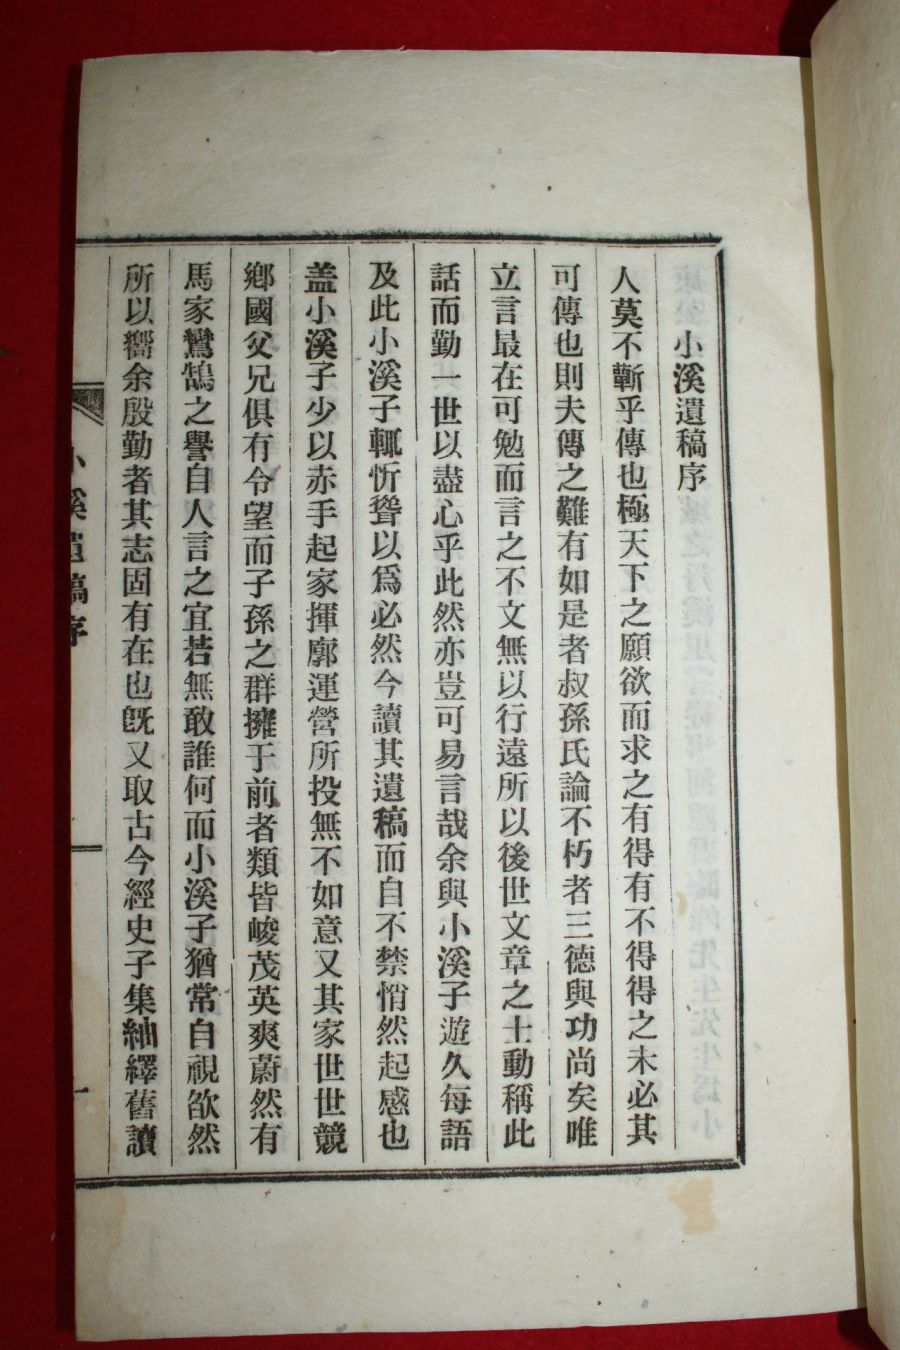 小溪遺稿序
人莫不蘄乎傳也極天下之願欲而求之有得有不得得之未必其
可傳也則夫傳之難有如是者叔孫氏論不朽者三德與功尚矣唯
立言最在可勉而言之不文無以行遠所以後世文章之士動稱此
話而勤一世以盡心乎此然亦豈可易言哉余與小溪子遊久每語
及此小溪子輒忻聳以爲必然今讀其遺稿而自不禁悄然起感也
盖小溪子少以赤手起家揮廓運營所投無不如意又其家世世競
鄕國父兄俱有令望而子孫之群擁于前者類皆峻茂英爽蔚然有
馬家鸞鵠之譽自人言之宜若無敢誰何而小溪子猶常自視欿然
所以嚮余殷勤者其志固有在也旣又取古今經史子集紬繹舊讀
小溪遺稿序
一